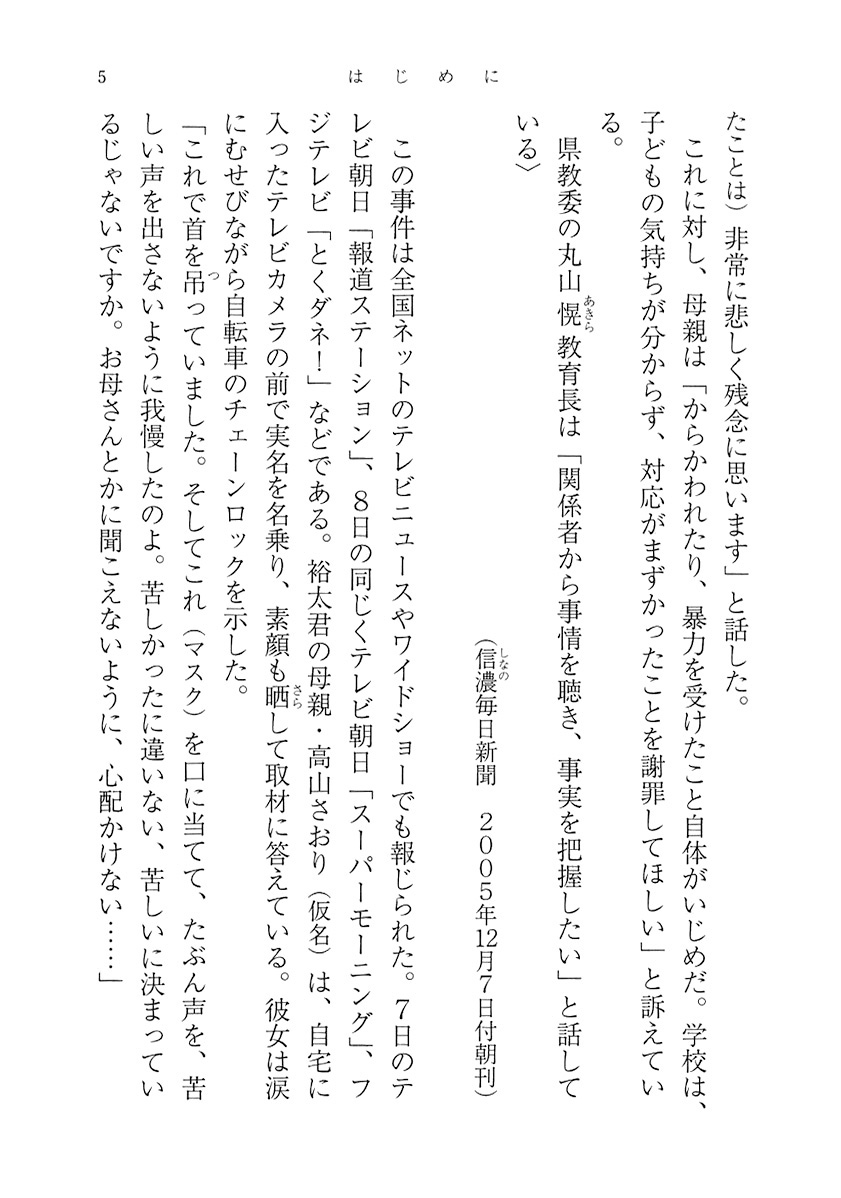 はじめに
5
たことは）非常に悲しく残念に思います」と話した。
これに対し、母親は「からかわれたり、暴力を受けたこと自体がいじめだ。学校は、
子どもの気持ちが分からず、対応がまずかったことを謝罪してほしい」と訴えてい
る。
県教委の丸山愰あきら教育長は「関係者から事情を聴き、事実を把握したい」と話して
いる〉
（信濃しなの毎日新聞　２００５年12月７日付朝刊）
この事件は全国ネットのテレビニュースやワイドショーでも報じられた。７日のテ
レビ朝日「報道ステーション」、８日の同じくテレビ朝日「スーパーモーニング」、フ
ジテレビ「とくダネ！」などである。裕太君の母親・高山さおり（仮名）は、自宅に
入ったテレビカメラの前で実名を名乗り、素顔も晒さらして取材に答えている。彼女は涙
にむせびながら自転車のチェーンロックを示した。
「これで首を吊つっていました。そしてこれ（マスク）を口に当てて、たぶん声を、苦
しい声を出さないように我慢したのよ。苦しかったに違いない、苦しいに決まってい
るじゃないですか。お母さんとかに聞こえないように、心配かけない……」